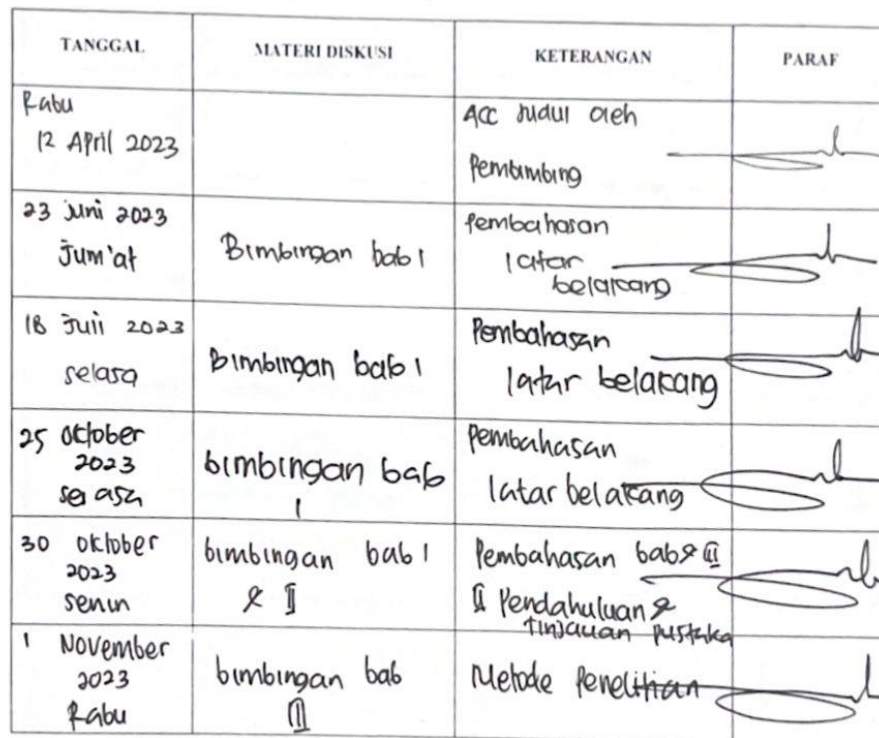 TANGGAL MATERI DISKUSI KETERANGAN PARAF
Rabu
12 April 2023
ACC Judul oleh
Pembimbing
23 Juni 2023
Jum'at
Bimbingan bab 1
Pembahasan
latar
belakang
18 Juli 2023
selasa
Bimbingan bab 1
Pembahasan
latar belakang
25 Oktober
2023
selasa
bimbingan bab
1
Pembahasan
latar belakang
30 Oktober
2023
Senin
bimbingan bab 1
& II
Pembahasan bab &
II Pendahuluan &
tinjauan pustaka
1 November
2023
Rabu
bimbingan bab
III
Metode Penelitian